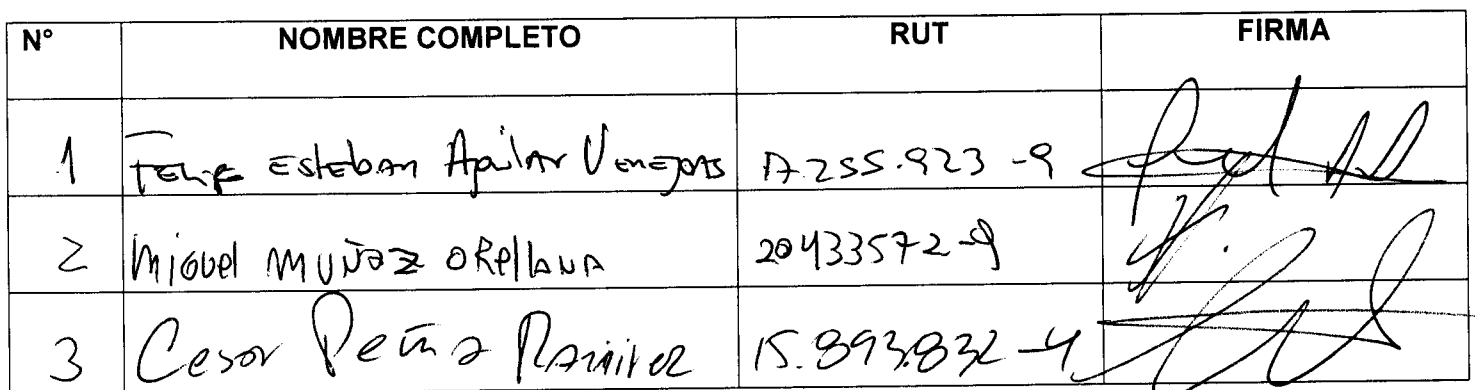 N° NOMBRE COMPLETO RUT FIRMA
1 Felipe Esteban Aguilar Venegas 17.255.923-9
2 Miguel Muñoz Orellana 20433572-9
3 Cesar Peña Ramirez 15.893.832-4